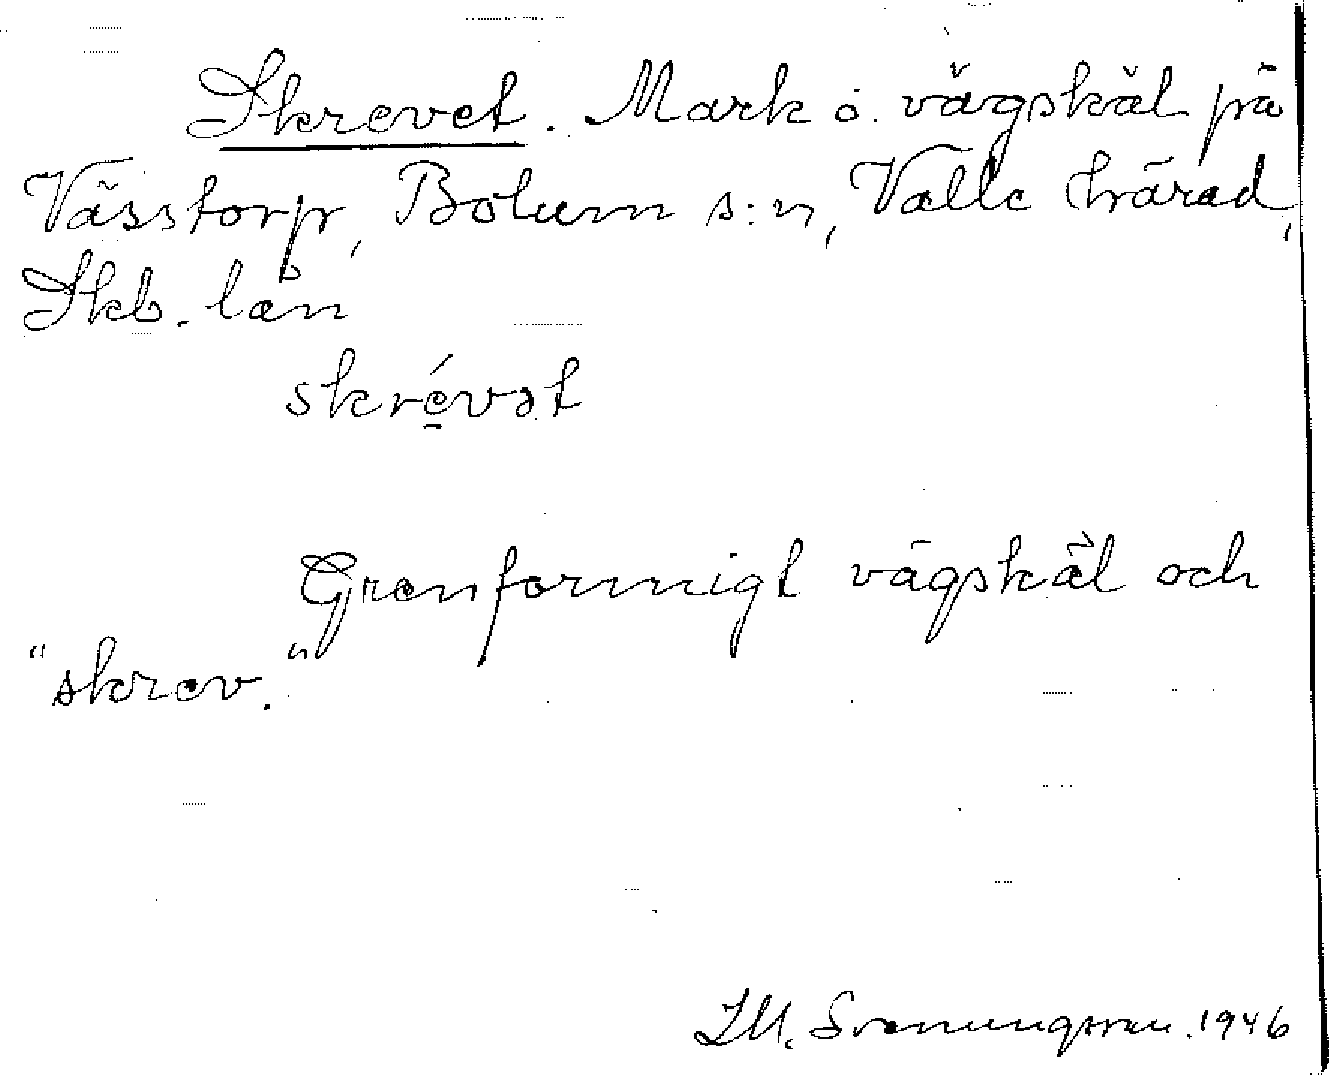 Skrevet. Mark o. vägskäl på
Vässtorp, Bolum s:n, Valle härad,
Skb. län
skrévət
Grenformigt vägskäl och
"skrev."
I.M. Svenungsson. 1946